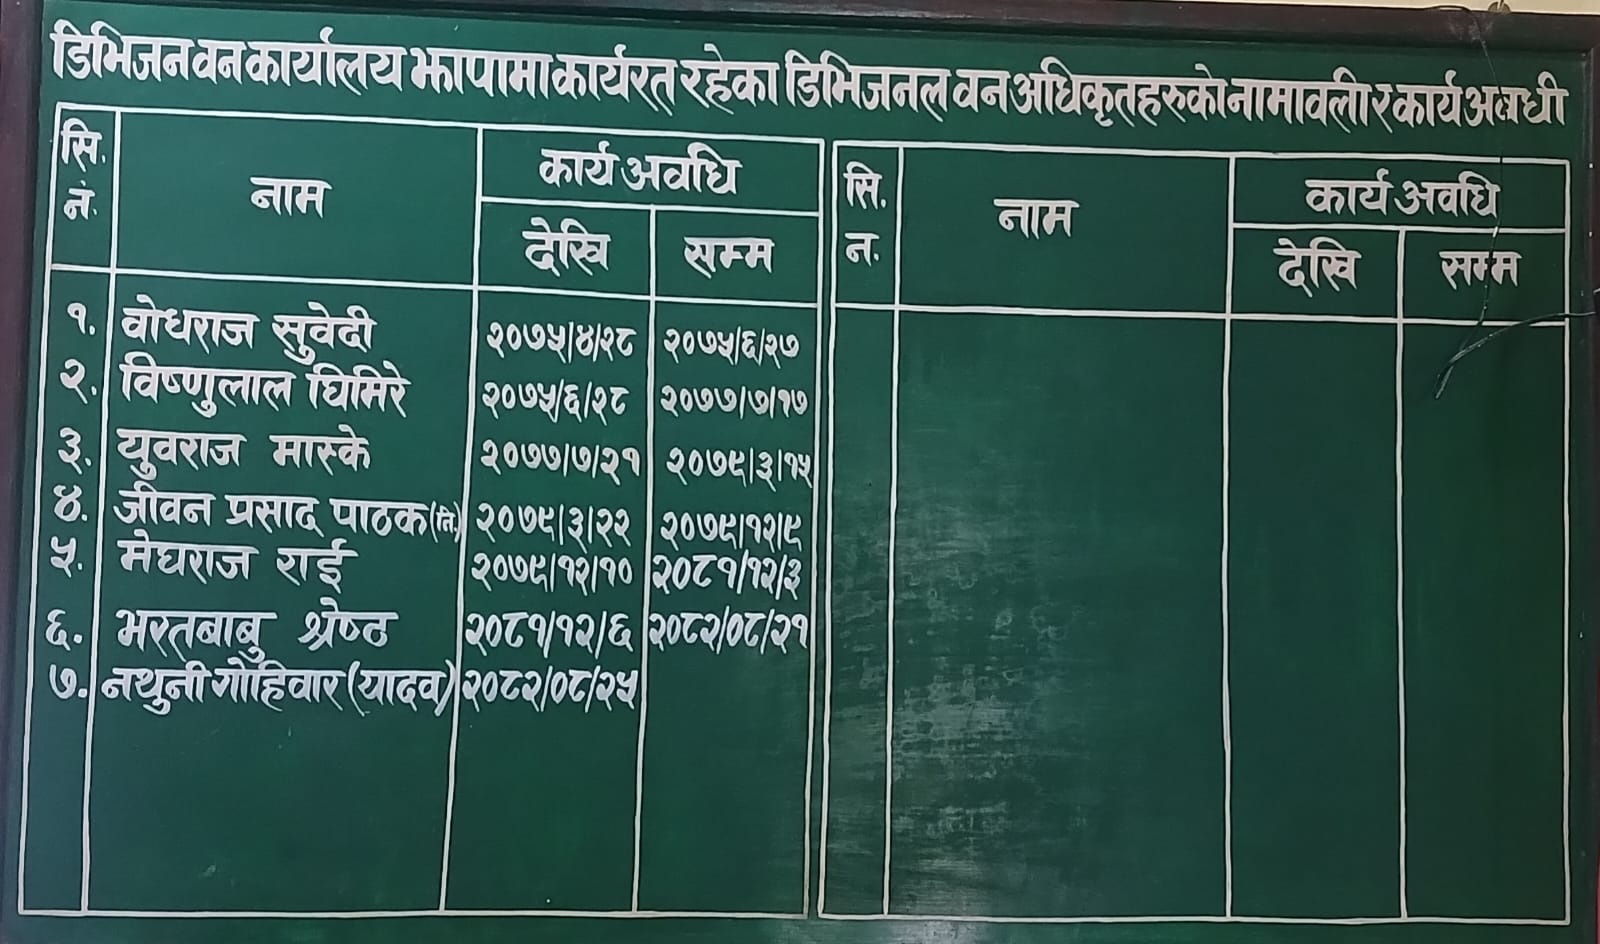 डिभिजन वन कार्यालय झापामा कार्यरत रहेका डिभिजनल वन अधिकृतहरुको नामावली र कार्य अबधी
सि. नं. नाम कार्य अवधि देखि सम्म
१. वोधराज सुवेदी २०७५/४/२८ २०७५/६/२७
२. विष्णुलाल घिमिरे २०७५/६/२८ २०७७/७/१७
३. युवराज मास्के २०७७/७/२१ २०७९/३/१५
४. जीवन प्रसाद पाठक (नि.) २०७९/३/२२ २०७९/१२/९
५. मेघराज राई २०७९/१२/१० २०८१/१२/३
६. भरतबाबु श्रेष्ठ २०८१/१२/६ २०८२/०८/२१
७. नथुनी गोहिवार (यादव) २०८२/०८/२५
सि. न. नाम कार्य अवधि देखि सम्म